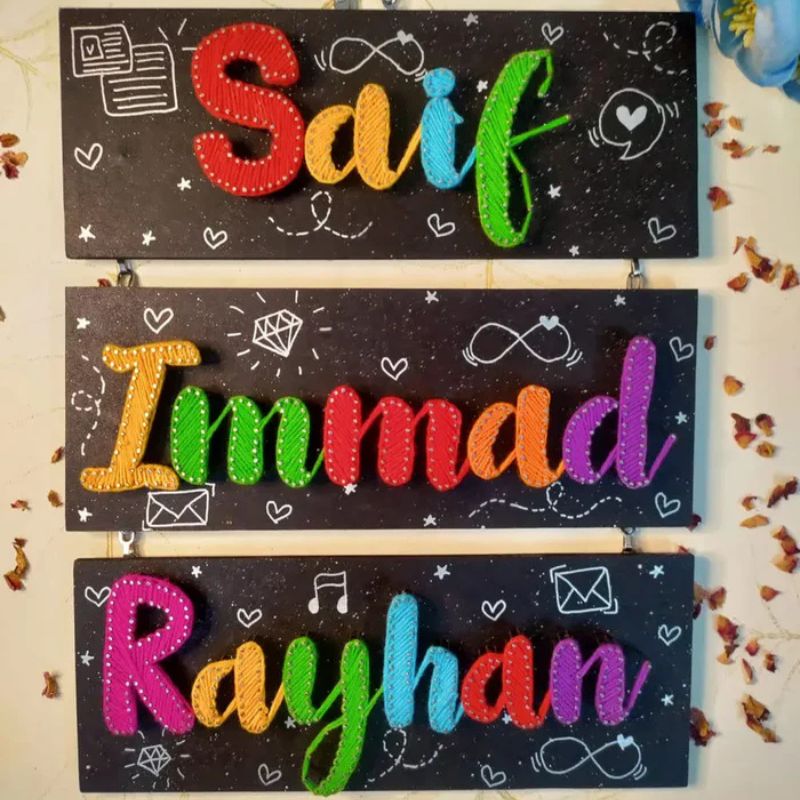 Saif
Immad
Rayhan